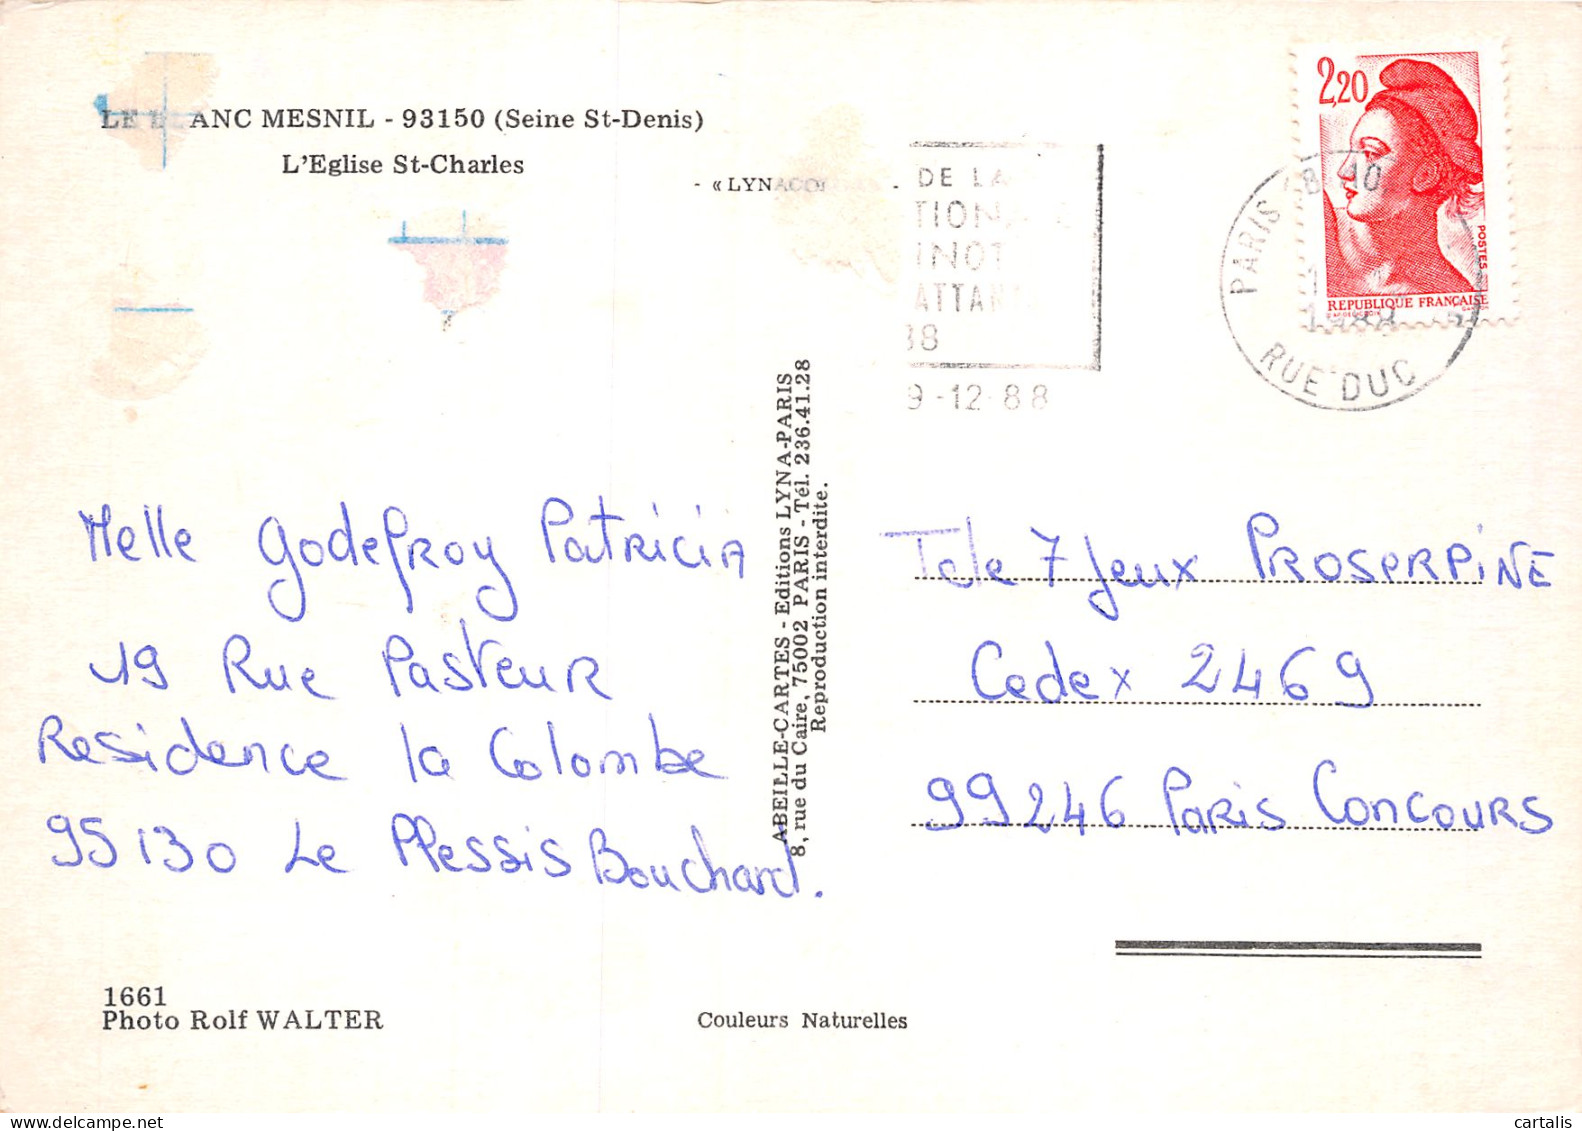 LE BLANC MESNIL - 93150 (Seine St-Denis)
L'Eglise St-Charles
- « LYN
DE LA
TION
INOT
ATTA
88
9-12-88
2,20
POSTES
REPUBLIQUE FRANÇAISE
PARIS
RUE DUC
1988
ABEILLE-CARTES - Editions LYNA-PARIS
8, rue du Caire, 75002 PARIS - Tél. 236.41.28
Reproduction interdite.
Melle Godefroy Patricia
19 Rue Pasteur
Residence la Colombe
95130 Le Plessis Bouchard.
Tele 7 Jeux PROSERPINE
Cedex 2469
99246 Paris Concours
1661
Photo Rolf WALTER
Couleurs Naturelles
cartalis